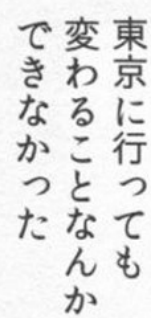 東京に行っても
変わることなんか
できなかった